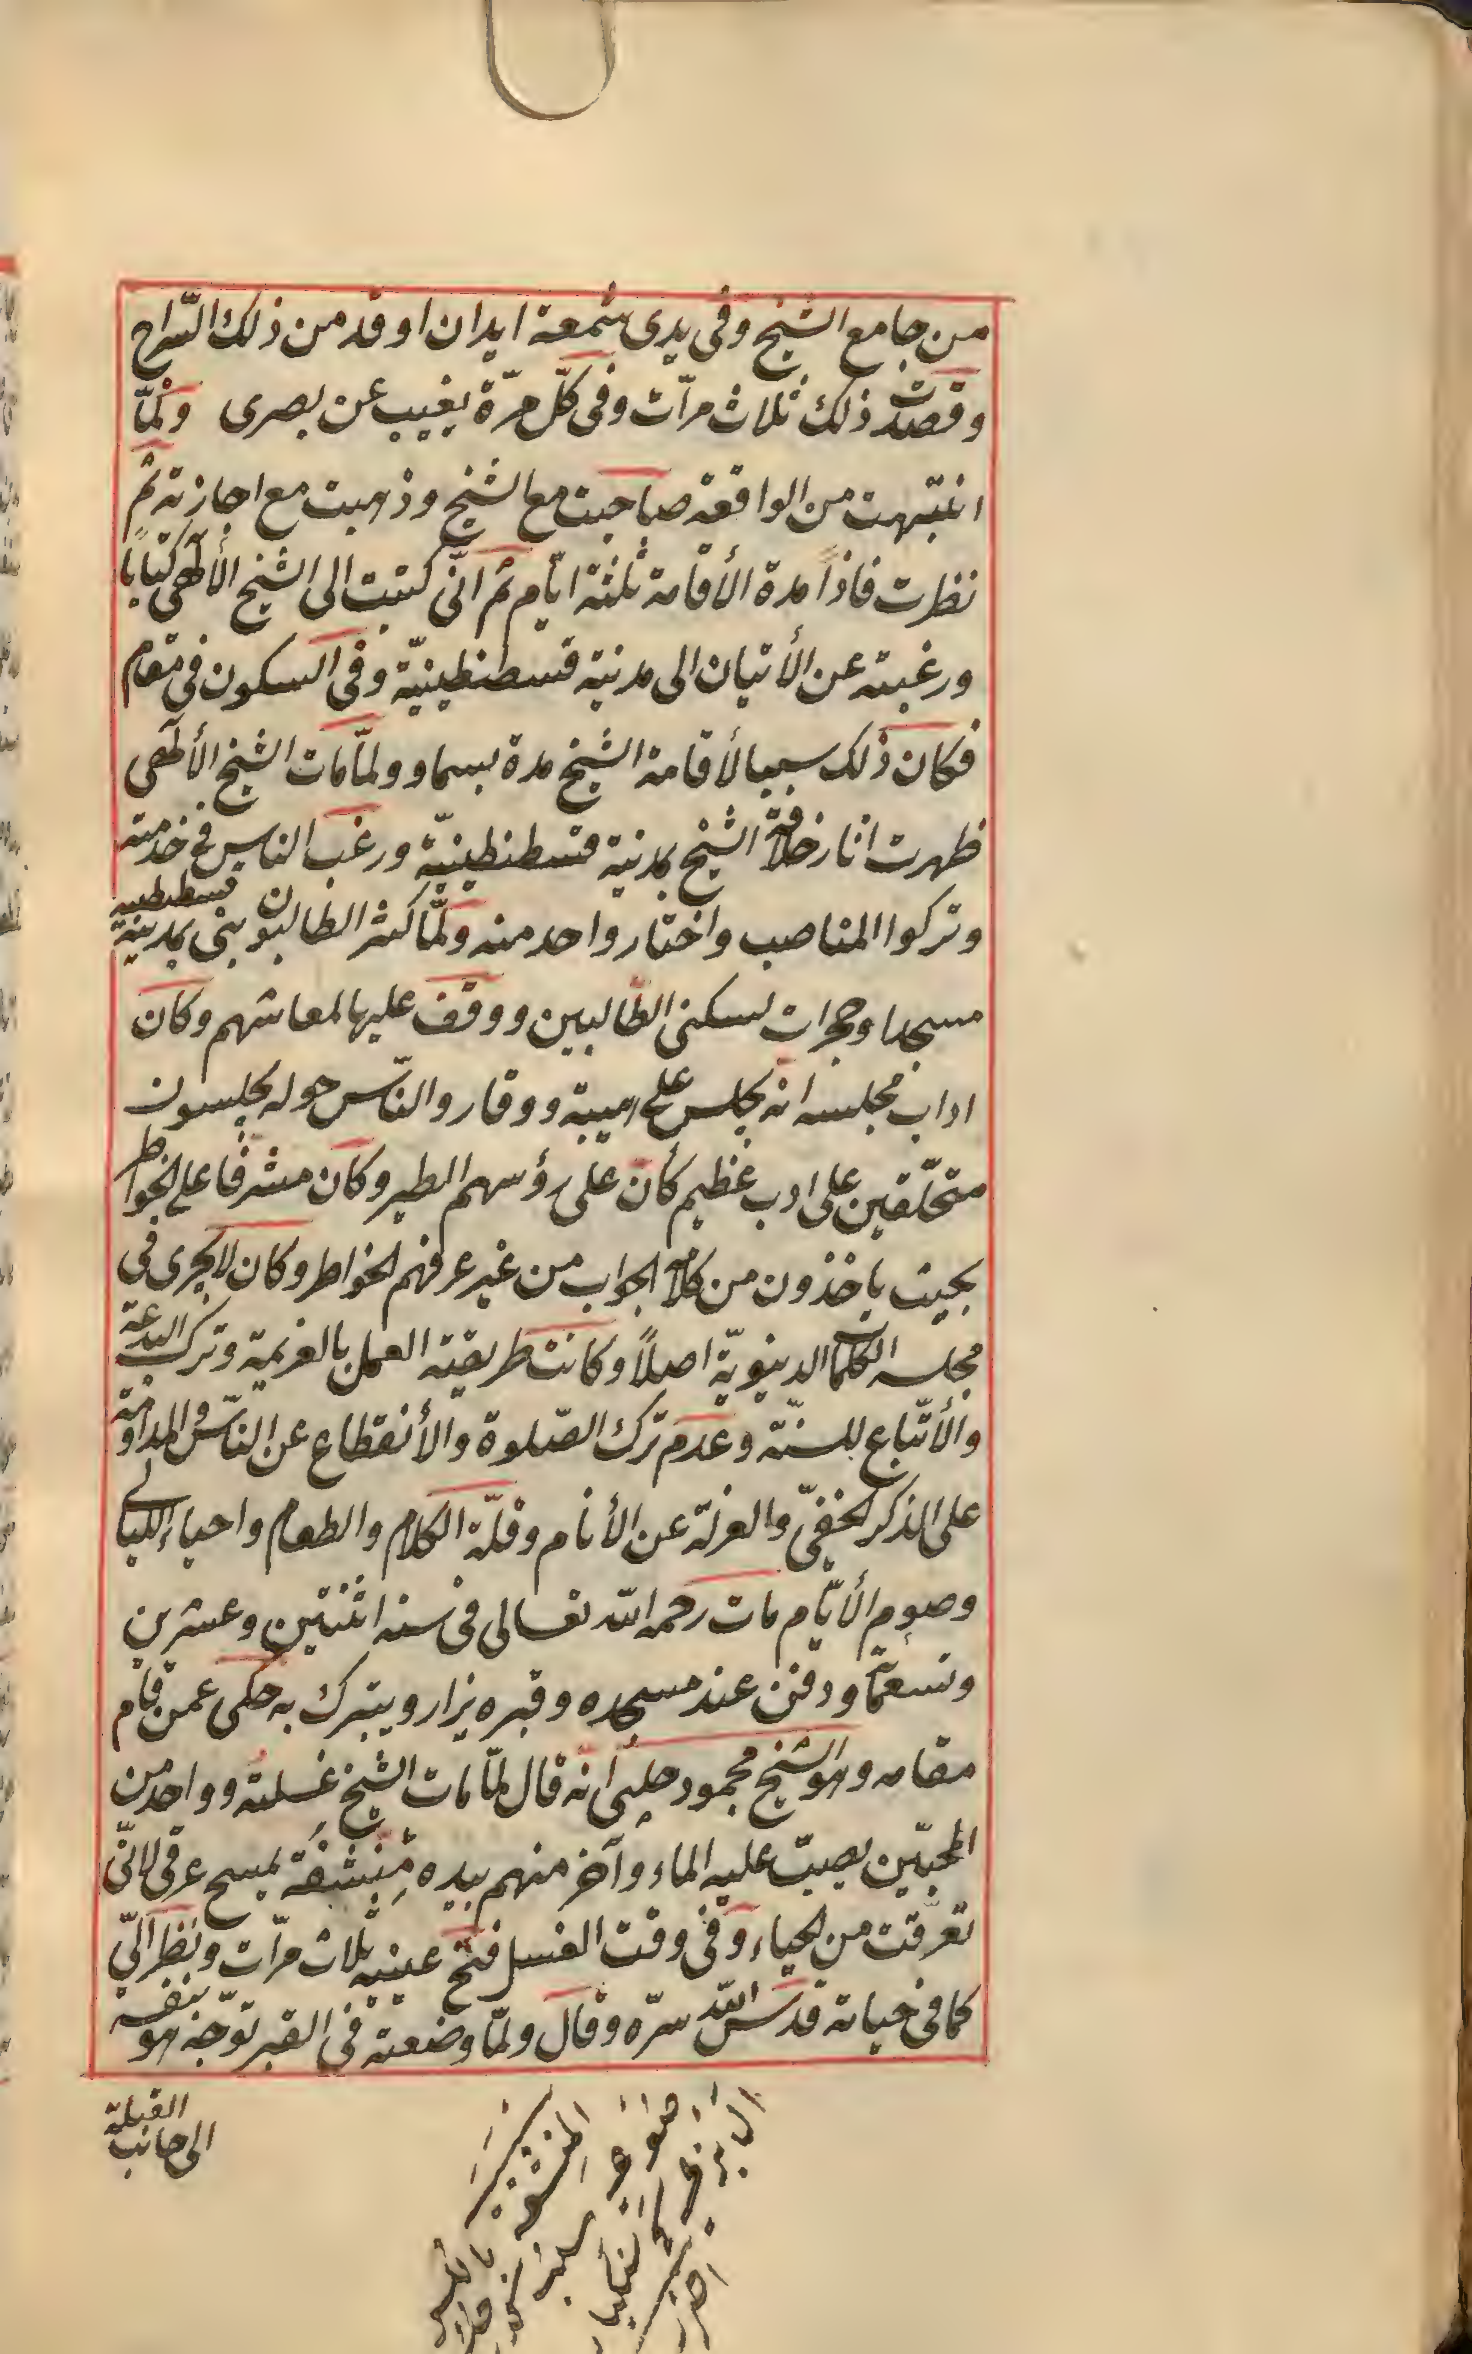 من جامع الشيخ وفى يدى شمعة اريد ان اوقد من ذلك السّراج
وقصدت ذلك ثلاث مرّات وفى كلّ مرّة يغيب عن بصرى ولمّا
انتبهت من الواقعة صاحبت مع الشيخ وذهبت مع اجازته ثم
نظرت فاذاً مدة الأقامة ثلثة ايّام ثم انّى كتبت الى الشيخ الألهى كتابا
ورغبته عن الأتيان الى مدينة قسطنطينيّة وفى السكون فى مقام
فكان ذلك سببا لأقامة الشيخ مدة بسماو ولمّا مات الشيخ الألهى
ظهرت اثار خلافة الشيخ بمدينة قسطنطينيّة ورغب الناس فى خدمته
وتركوا المناصب واختار واحد منه ولمّا كثر الطالبون بنى بمدينة قسطنطينية
مسجدا وحجرات لسكنى الطّالبين ووقف عليها لمعاشهم وكان
اداب مجلسه انّه يجلس على هيبة ووقار والنّاس حوله يجلسون
متحلّقين على ادب عظيم كأنّ على رؤسهم الطير وكان مشرفا على الخواطر
بحيث ياخذون من كلامه الجواب من غير عرفهم الخواطر وكان لا يجرى فى
مجلسه الكلمات الدينويّة اصلاً وكانت طريقته العمل بالعزيمة وترك البدعة
والأتّباع للسنّة وعدم ترك الصّلوة والأنقطاع عن النّاس والمداومة
على الذكر الخفىّ والعزلة عن الأنام وقلّة الكلام والطعام واحياء الليالى
وصوم الأيّام مات رحمه الله تعالى فى سنه اثنتين وعشرين
وتسعمائة ودفن عند مسجده وقبره يزار ويتبرك به حكى عمن قام
مقامه وهو الشيخ محمود چلبى انّه قال لمّا مات الشيخ غسلته وواحد من
المحبّين يصبّ عليه الماء وآخر منهم بيده مِنشفة يمسح عرقى لانّى
تعرّقت من الحياء وفى وقت الغسل فتح عينيه ثلاث مرّات ونظر الىّ
كما فى حياته قدس الله سرّه وقال ولمّا وضعته فى القبر توجّه هو بنفسه
الى جانب القبلة